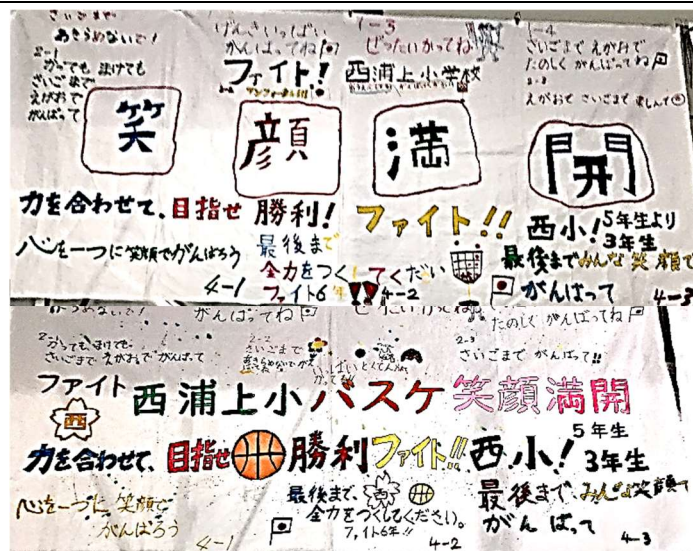 さいごまで
あきらめないで!
2-1
かっても まけても
さいごまで
えがおで
がんばって
げんきいっぱい
がんばってね
ファイト!
1-3
ぜったいかってね
西浦上小学校
1-4
さいごまで えがおで
たのしく がんばってね
2-3
えがおで さいごまで 楽しんで
笑 顔 満 開
力を合わせて、目指せ 勝利! ファイト!! 西小! 5年生より
3年生
心を一つに笑顔でがんばろう
4-1
最後まで
全力をつくしてください
ファイト6年!!
4-2
最後までみんな笑顔で
がんばって
4-3
がんばってね
たのしく がんばってね
かっても まけても
さいごまで えがおで がんばって
2-2
さいごまで
2-3
さいごまで がんばって!!
ファイト 西 西浦上小バスケ 笑顔満開
力を合わせて、目指せ 勝利 ファイト!! 西小! 5年生
3年生
心を一つに 笑顔で
がんばろう
4-1
最後まで、
全力をつくしてください。
ファイト6年!!
4-2
最後まで、みんな笑顔で
がんばって
4-3